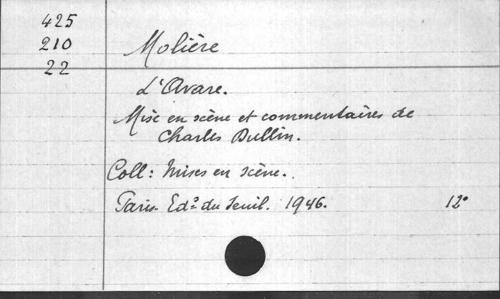 425
210
22
Molière
L'Avare.
Mise en scène et commentaires de
Charles Dullin.
Coll: Mises en scène.
Paris. Edo. du Seuil. 1946. 12°